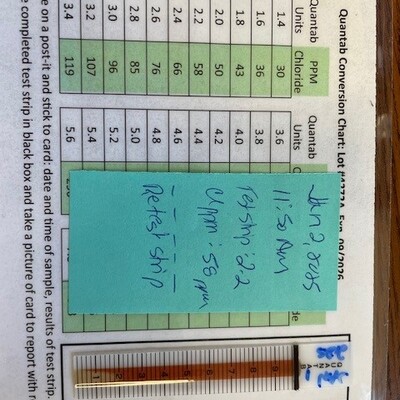 Quantab Conversion Chart: Lot #4272A Exp. 09/2026
Quantab Units PPM Chloride
1.4 30
1.6 36
1.8 43
2.0 50
2.2 58
2.4 66
2.6 76
2.8 85
3.0 96
3.2 107
3.4 119
Quantab Units
3.6
3.8
4.0
4.2
4.4
4.6
4.8
5.0
5.2
5.4
5.6
Jan 2, 2025
11:50 AM
Test strip: 2.2
Cl ppm: 58 ppm
Retest strip
e on a post-it and stick to card: date and time of sample, results of test strip.
e completed test strip in black box and take a picture of card to report with r
QUANTAB
9
8
7
6
5
4
3
2
1